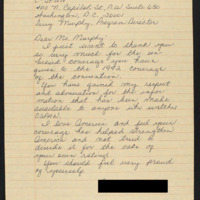 400 N. Capitol St., N.W. Suite 650
Washington, D.C. 20001
Terry Murphy, Program Director
Dear Mr. Murphy:
I just want to thank you
so very much for the un-
biased coverage you have
given to the 1992 coverage
of the convention.
You have gained my respect
and admiration for the infor-
mation that has been made
available to anyone who watches
CSPAN.
I love America and feel your
coverage has helped strengthen
America and not tried to
divide it for the sake of
your own rating!
You should feel very proud
of yourself.